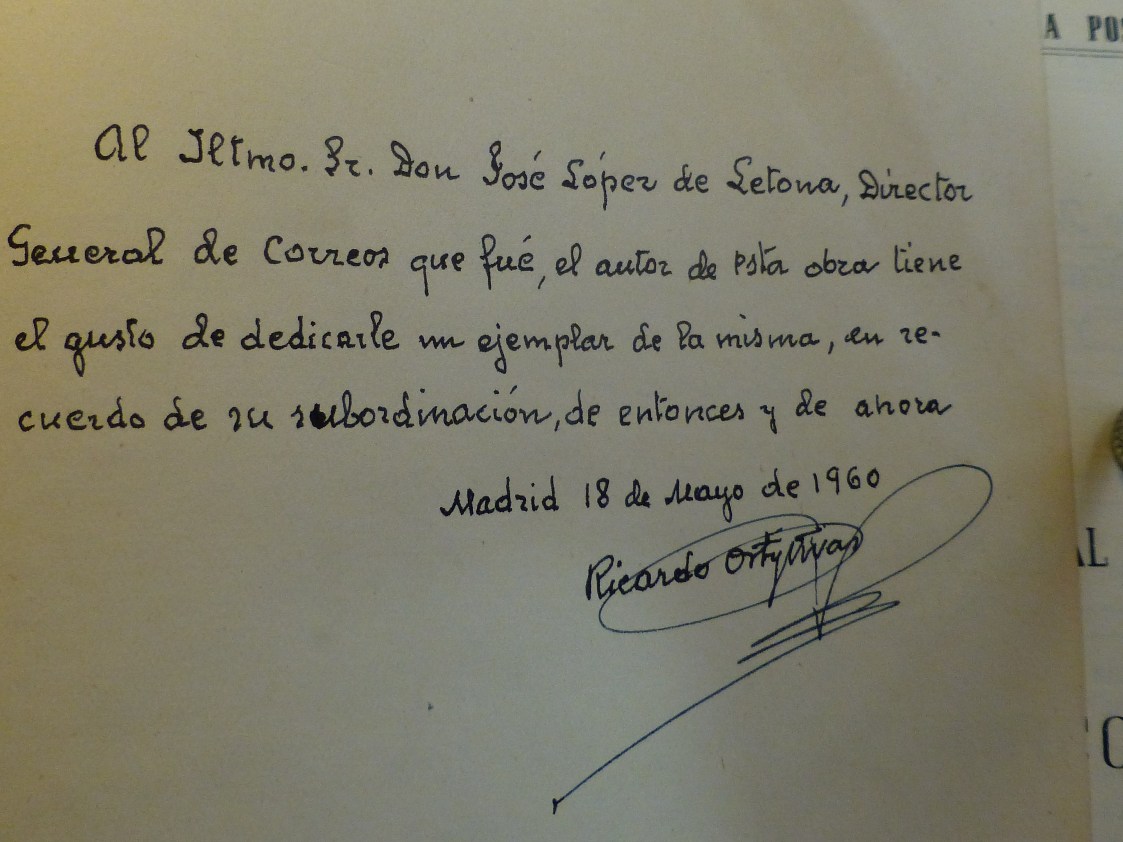 Al Iltmo. Sr. Don José López de Letona, Director
General de Correos que fué, el autor de esta obra tiene
el gusto de dedicarle un ejemplar de la misma, en re-
cuerdo de su subordinación, de entonces y de ahora
Madrid 18 de Mayo de 1960
Ricardo
A POS
AL
C